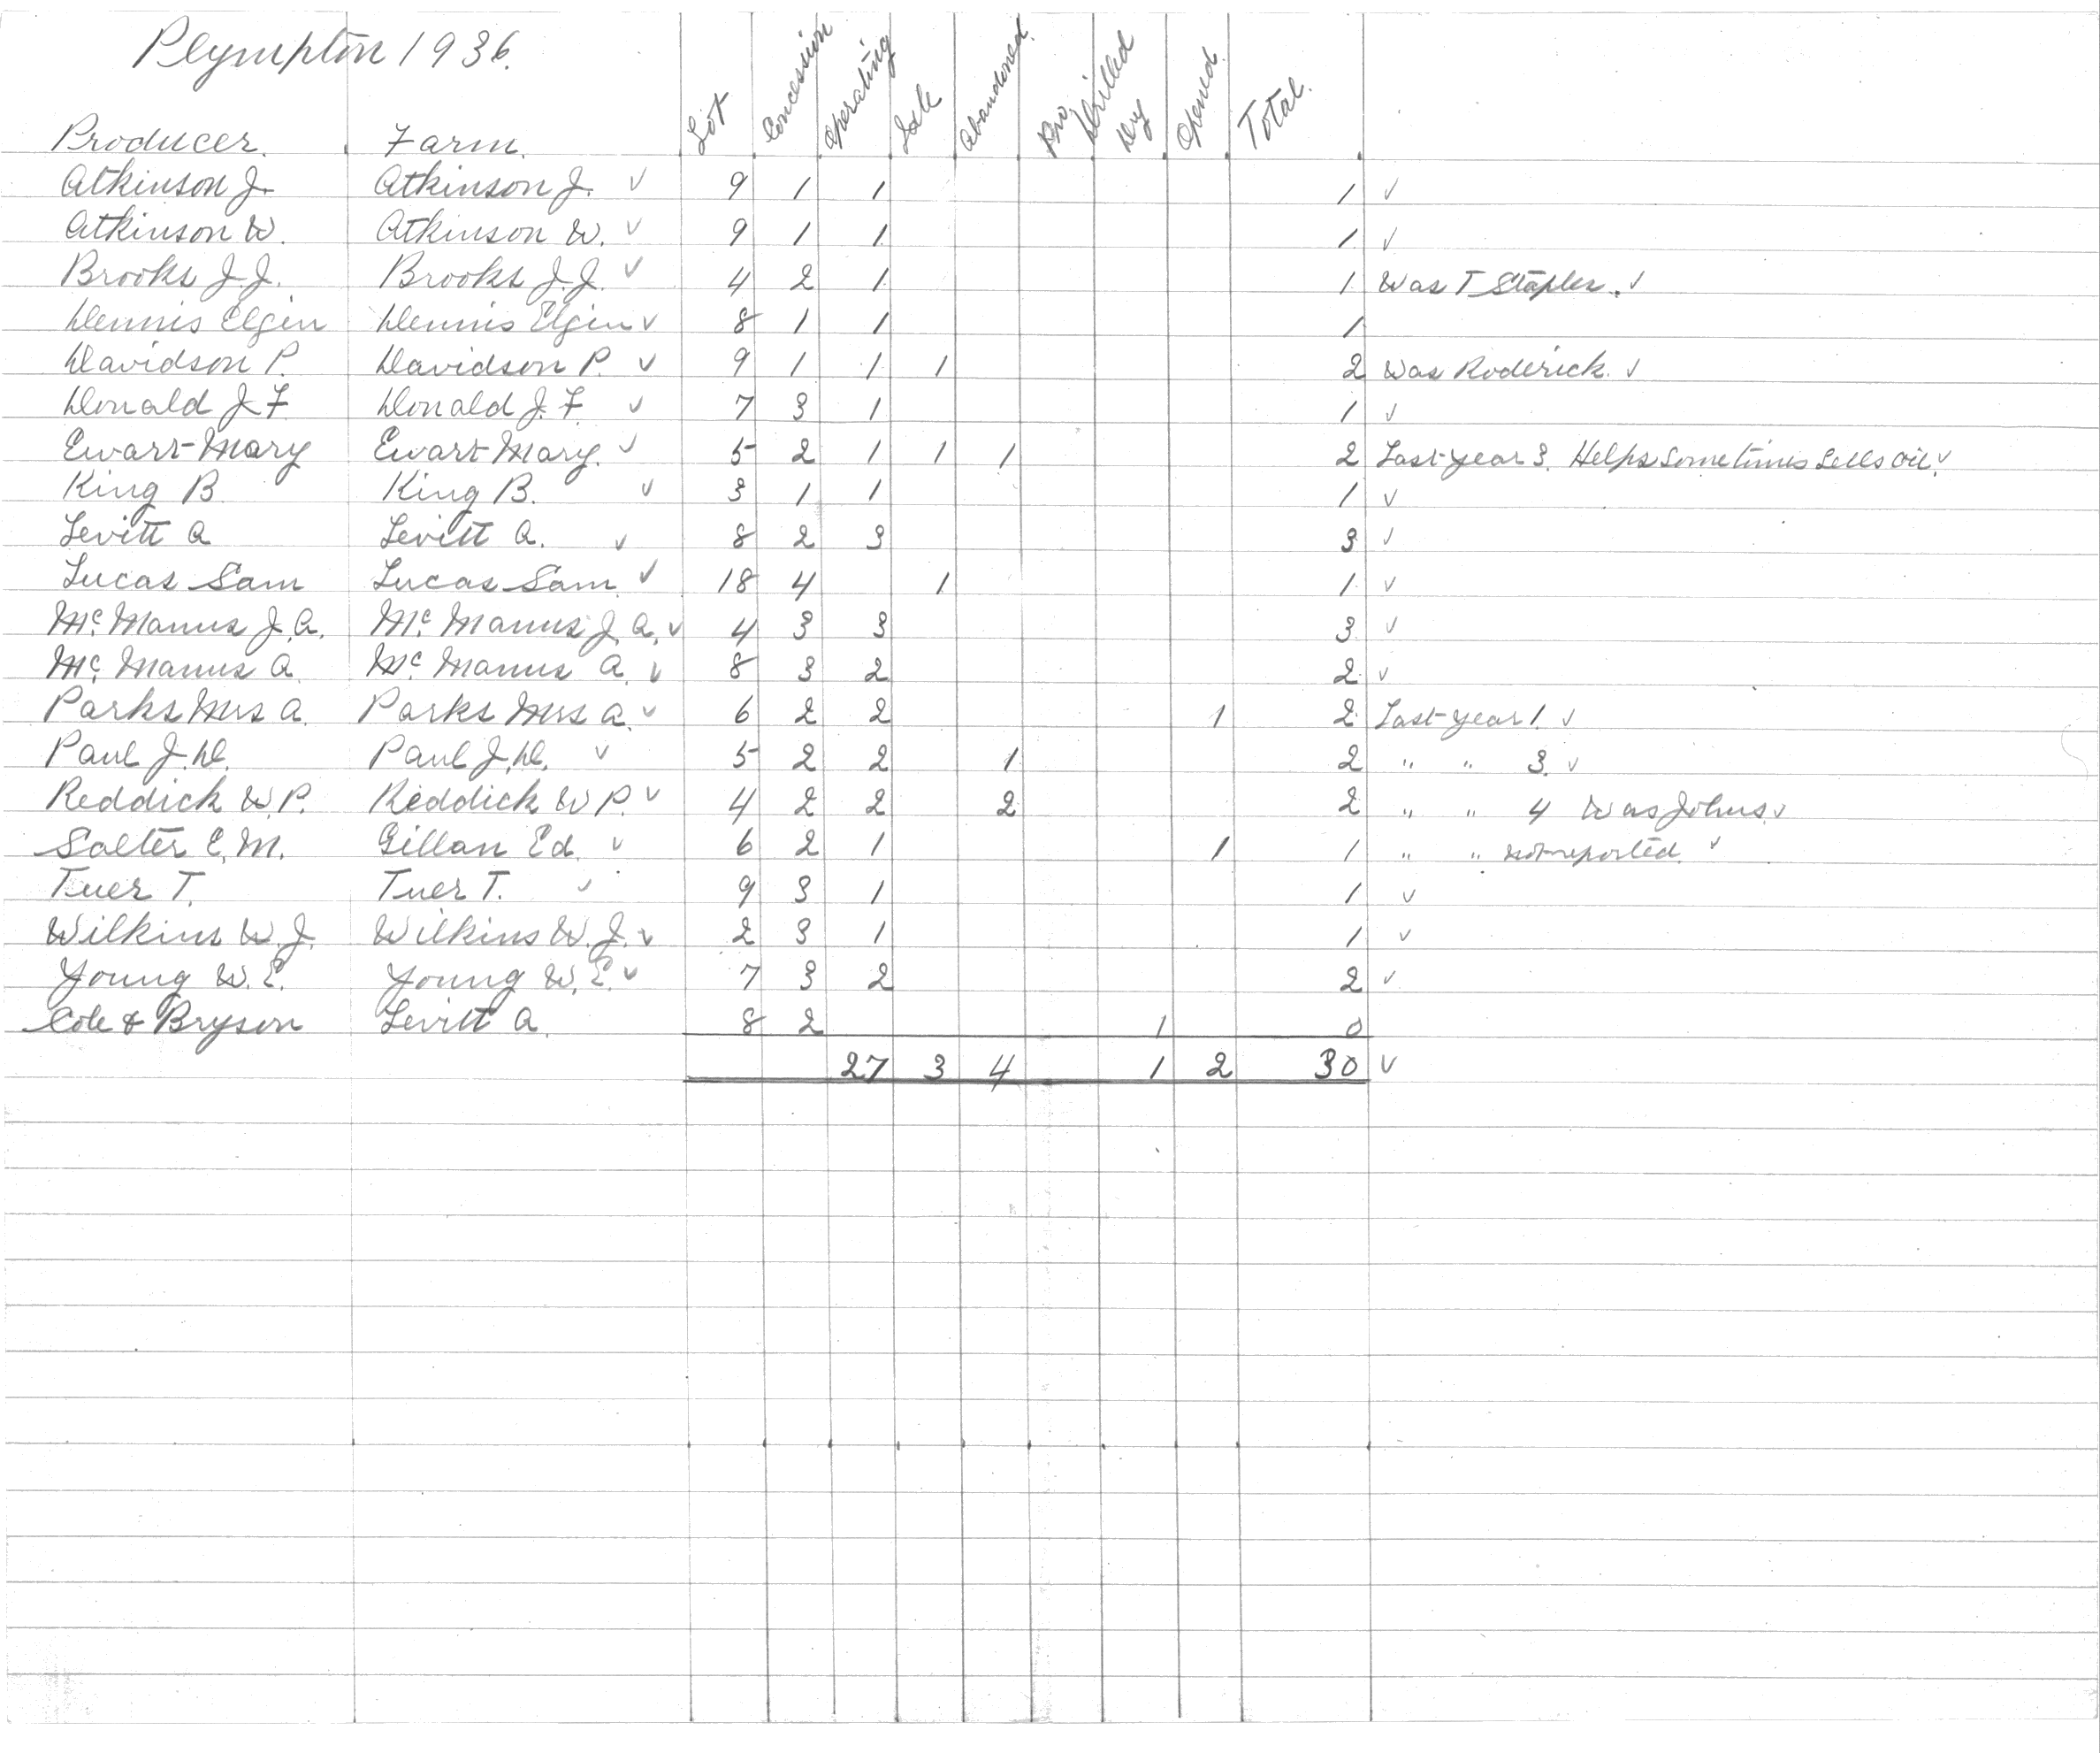 Plympton 1936.
Producer. Farm. Lot Concession Operating Idle Abandoned. Pro Drilled Dry Opened Total.
Atkinson J. Atkinson J. ✓ 9 1 1 1 ✓
Atkinson W. Atkinson W. ✓ 9 1 1 1 ✓
Brooks J.J. Brooks J.J. ✓ 4 2 1 1 Was T Stapler. ✓
Dennis Elgin Dennis Elgin ✓ 8 1 1 1
Davidson P. Davidson P. ✓ 9 1 1 1 2 Was Roderick. ✓
Donald J.F. Donald J.F. ✓ 7 3 1 1 ✓
Ewart Mary Ewart Mary. ✓ 5 2 1 1 1 2 Last year 3. Helps sometimes sells oil. ✓
King B. King B. ✓ 3 1 1 1 ✓
Levitt A Levitt A. ✓ 8 2 3 3 ✓
Lucas Sam Lucas Sam ✓ 18 4 1 1 ✓
Mc.Manus J.A. Mc.Manus J.A. ✓ 4 3 3 3 ✓
Mc.Manus A Mc.Manus A. ✓ 8 3 2 2 ✓
Parks Mrs A. Parks Mrs A. ✓ 6 2 2 1 2 Last year 1. ✓
Paul J.D. Paul J.D. ✓ 5 2 2 1 2 " " 3. ✓
Reddick W.P. Reddick W P. ✓ 4 2 2 2 2 " " 4 Was Johns. ✓
Salter E.M. Gillan Ed. ✓ 6 2 1 1 1 " " not reported. ✓
Tuer T. Tuer T. ✓ 9 3 1 1 ✓
Wilkins W.J. Wilkins W.J. ✓ 2 3 1 1 ✓
Young W.E. Young W.E. ✓ 7 3 2 2 ✓
Cole & Bryson Levitt A. 8 2 1 0
27 3 4 1 2 30 ✓